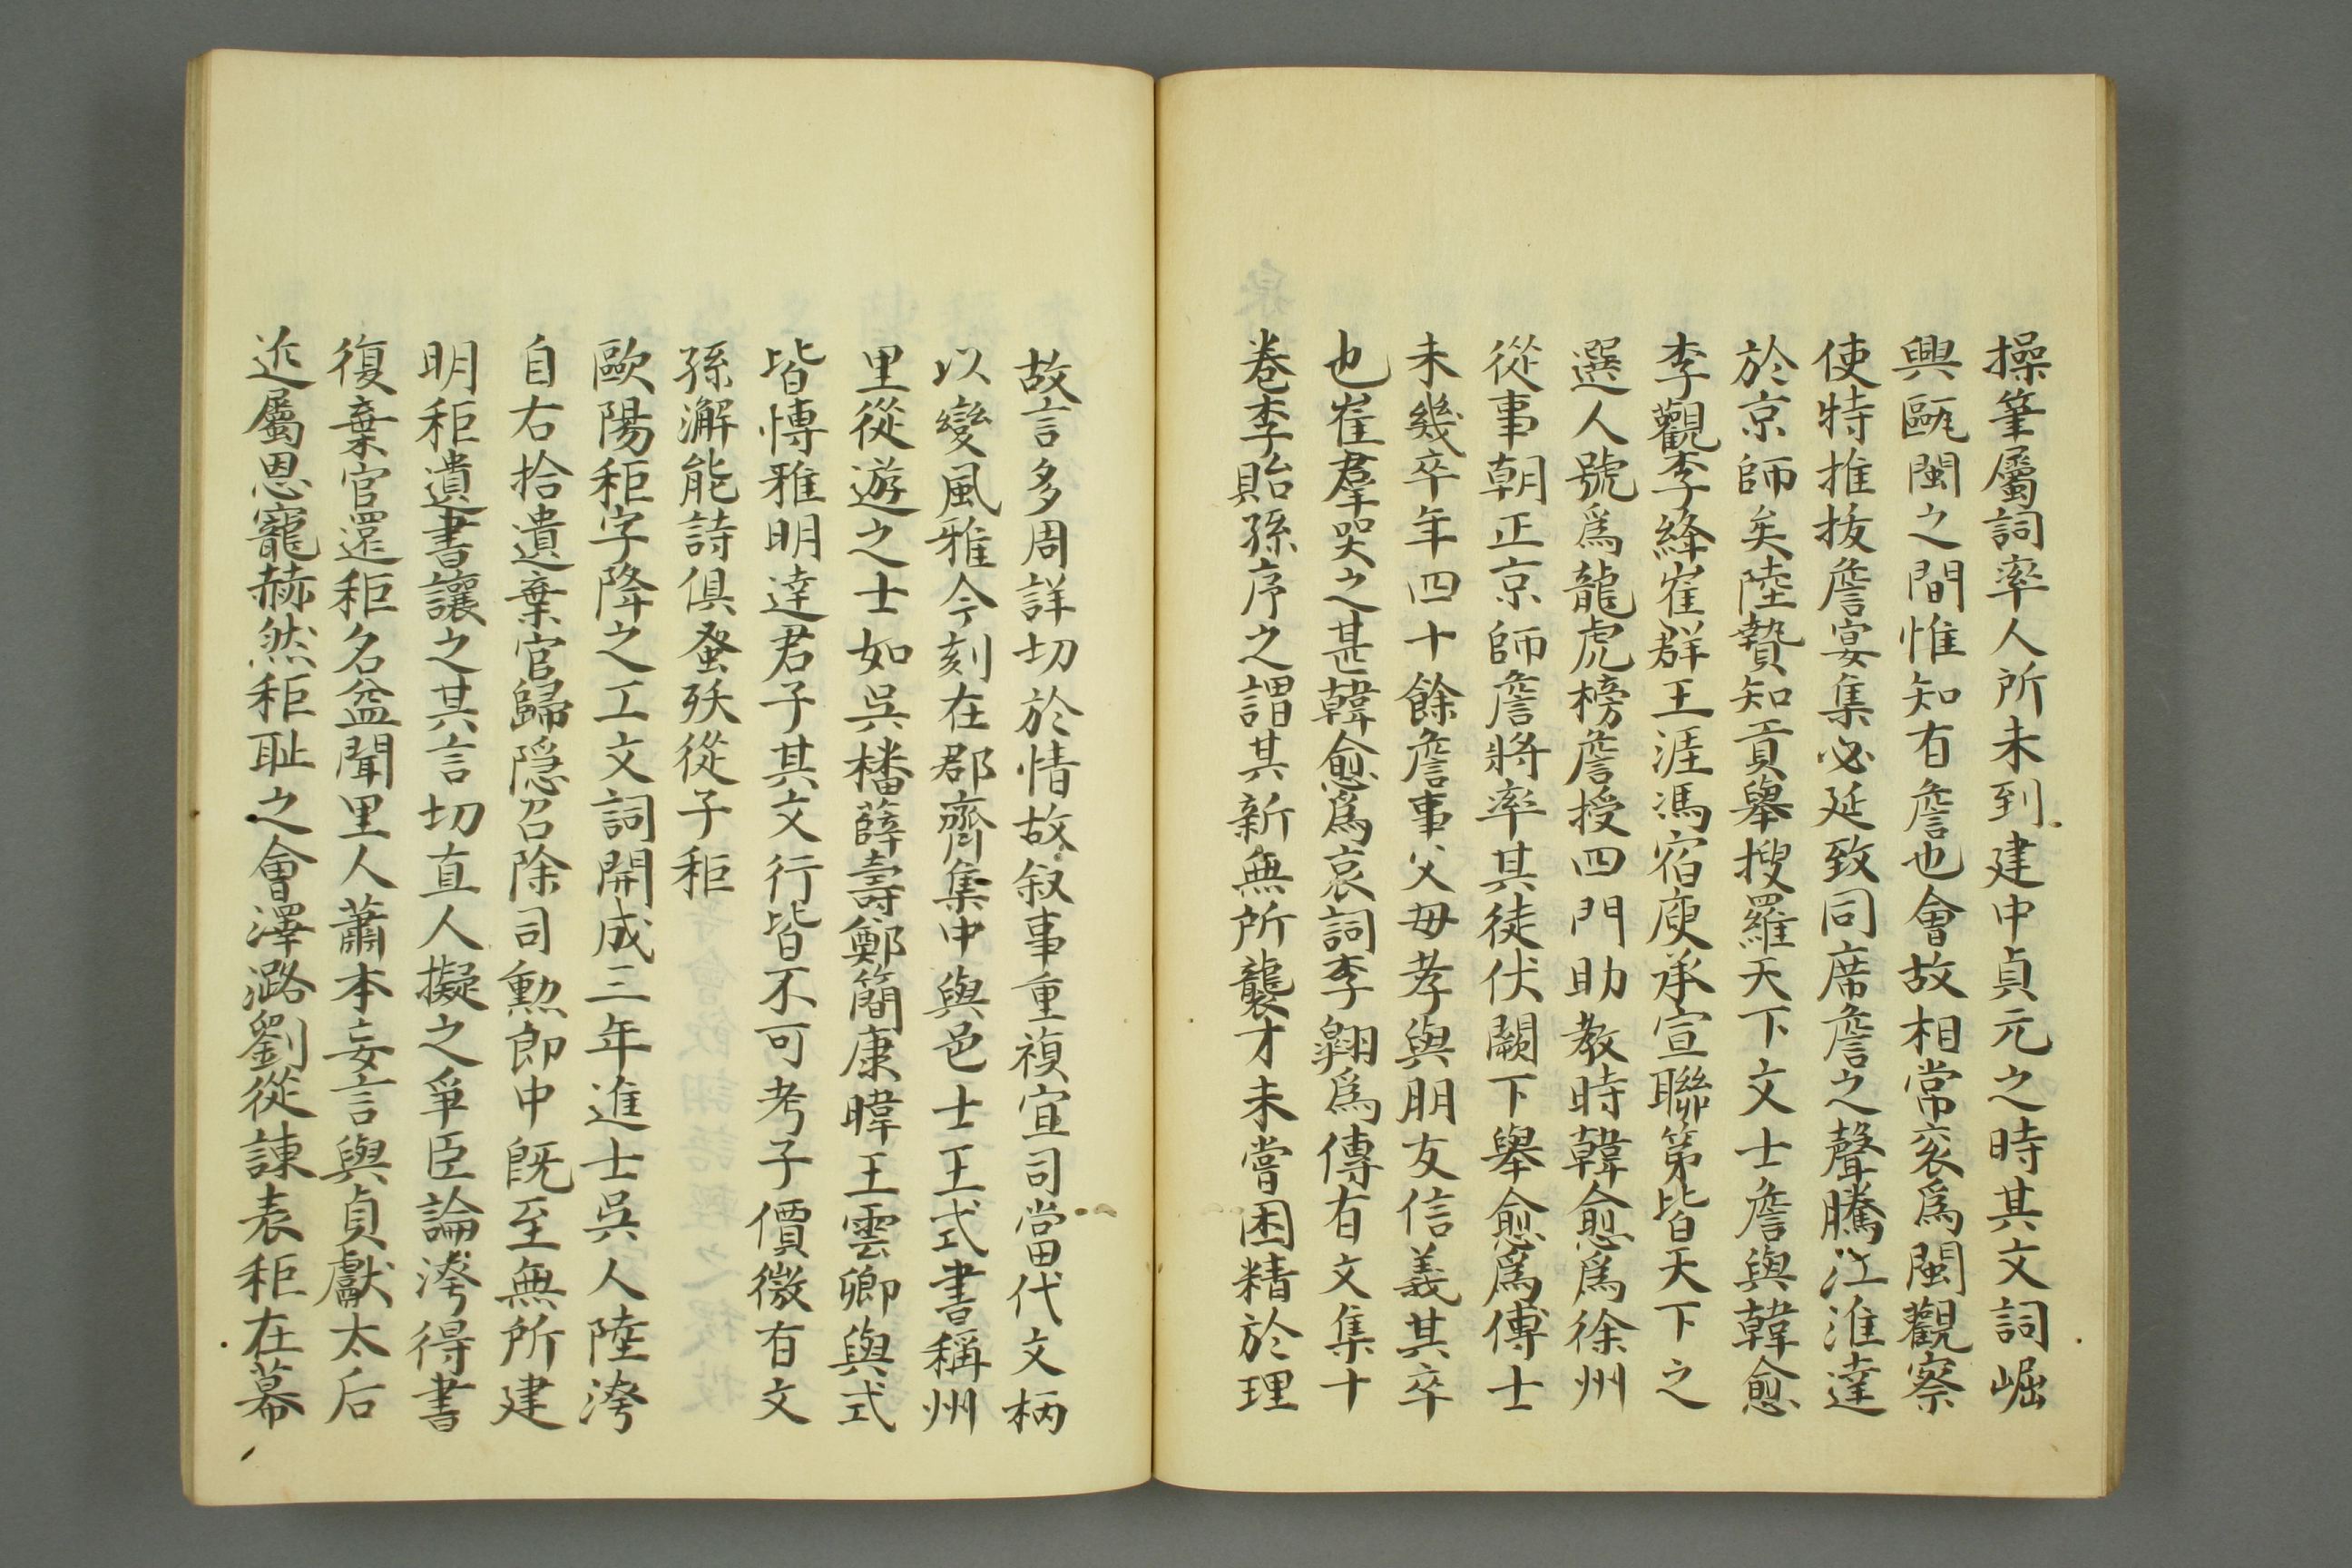 操筆屬詞率人所未到建中貞元之時其文詞崛
興甌閩之間惟知有詹也會故相常衮爲閩觀察
使特推拔詹宴集必延致同席詹之聲騰江淮達
於京師矣陸贄知貢舉搜羅天下文士詹與韓愈
李觀李絳崔群王涯馮宿庾承宣聯第皆天下之
選人號爲龍虎榜詹授四門助教時韓愈爲徐州
從事朝正京師詹將率其徒伏闕下舉愈爲傅士
未幾卒年四十餘詹事父毋孝與朋友信義其卒
也崔羣哭之甚韓愈爲哀詞李翱爲傳有文集十
卷李貽孫序之謂其新無所襲才未嘗困精於理
故言多周詳切於情故叙事重複宜司當代文柄
以變風雅今刻在郡齊集中與邑士王式書稱州
里從遊之士如吳橎薛壽鄭簡康暐王雲卿與式
皆愽雅明達君子其文行皆不可考子價微有文
孫澥能詩俱蚤殀從子秬
歐陽秬字降之工文詞開成三年進士吳人陸洿
自右拾遺棄官歸隠召除司勲郎中既至無所建
明秬遺書讓之其言切直人擬之爭臣論洿得書
復棄官還秬名益聞里人蕭本妄言與貞獻太后
近屬恩寵赫然秬耻之會澤潞劉從諫表秬在幕